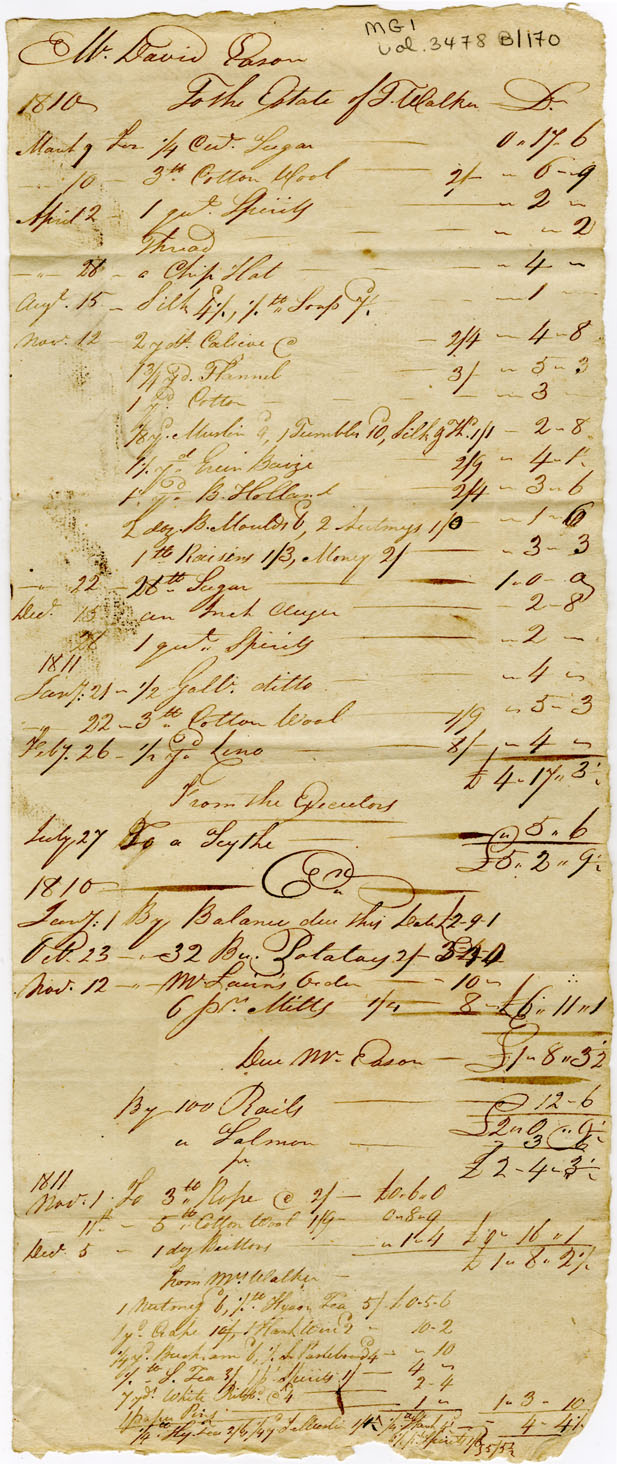 MG1
Vol. 3478 B/170
Mr. David Eason
1810 To the Estate of T. Walker Dr.
March 9 For 1/4 Cwt. Sugar 0 " 17 - 6
" 10 - 3 lb Cotton Wool 2/ " 6 - 9
April 2 - 1 qut. Spirits " 2 "
Thread " " 2
" 28 - a Chip Hat " 4 "
Augt. 15 - Silk 4 1/2, 1/2 lb Soap " 1 -
Novr. 12 - 2 yds. Calicoe @ 2/4 " 4 - 8
1 3/4 yd. Flannel 3/ " 5 - 3
1 yd. Cotton " 3 -
7/8 yd. Muslin, 1 Tumbler 10, Silk & Th. 1/1 " 2 - 8
1 1/2 yd Green Baize 2/9 " 4 - 1 1/2
1 1/2 yd B. Holland 2/4 " 3 " 6
2 doz B. Moulds 6, 2 Nutmegs 1/0 " 1 " 6
1 lb Raisens 1/3, Money 2/ " 3 " 3
" 22 - 28 lb Sugar 1 " 0 " 9
Decr. 15 - an Inch Auger " 2 - 8
28 1 qut. Spirits " 2 "
1811
Jany. 21 - 1/2 Galln. ditto " 4 "
" 22 - 3 lb Cotton Wool 1/9 " 5 - 3
Feby. 26 - 1/2 yd Lino 8/ " 4 "
£ 4 " 17 " 3 1/2
From the Executors
July 27 To a Scythe " 5 " 6
£5 " 2 " 9 1/2
1810 Cr.
Jany. 1 By Balance due this Date £2 - 9 - 1
Oct. 23 - " 32 Bu. Potatoes 2/ - 3 4 0
Nov. 12 - " Mr Order 10 "
6 pr. Mitts 1/4 8 - £6 " 11 " 1
Due Mr. Eason £1 " 8 " 3 1/2
By 100 Rails 12 - 6
£2 " 0 " 9 1/2
a Salmon 3 " 6
£ 2 - 4 - 3 1/2
1811
Nov. 1 To 3 lb Rope @ 2/ - £0 " 6 " 0
11th - 5 lb Cotton Wool 1/9 - 0 " 8 " 9
Decr. 5 - 1 doz Buttons " 1 " 4 £0 " 16 " 1
£ 1 " 8 " 2 1/2
from Mrs. Walker -
1 Nutmeg 6, 1/2 lb Hyson Tea 5/ £0 - 5 - 6
1 yd. Crape 10/, 1 - 10 - 2
1/4 yd. Buckram 6, 4 - " 10
Tea 3/, Spirits 1/ 4 "
7 yds White Ribbn. @ 4 2 - 4
1 paper Pins 1 " 1 " 3 " 10
1/4 lb Hy. Tea 2/6 Muslin Spirits 4 - 4 1/2